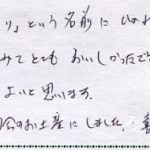 り」という名前に
みてとてもおいしかったで
よいと思います.
のお土産にしました.